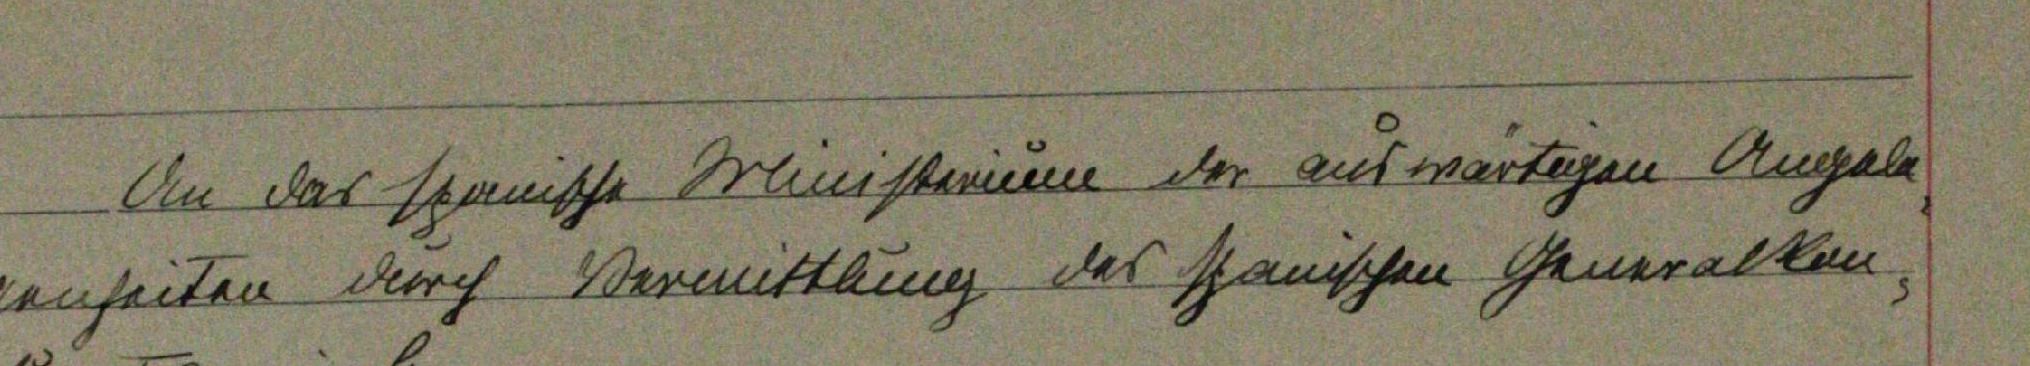 An das spanische Ministerium der auswärtigen Angele-
genheiten durch Vermittlung des spanischen Generalkon-